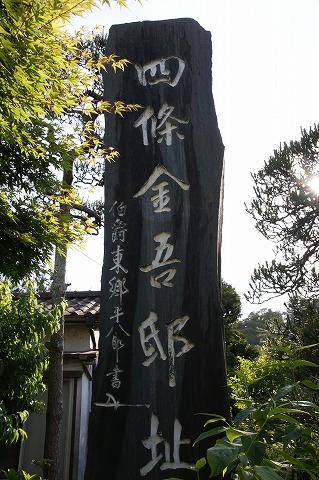 四條金吾邸址
伯爵東郷平八郎書